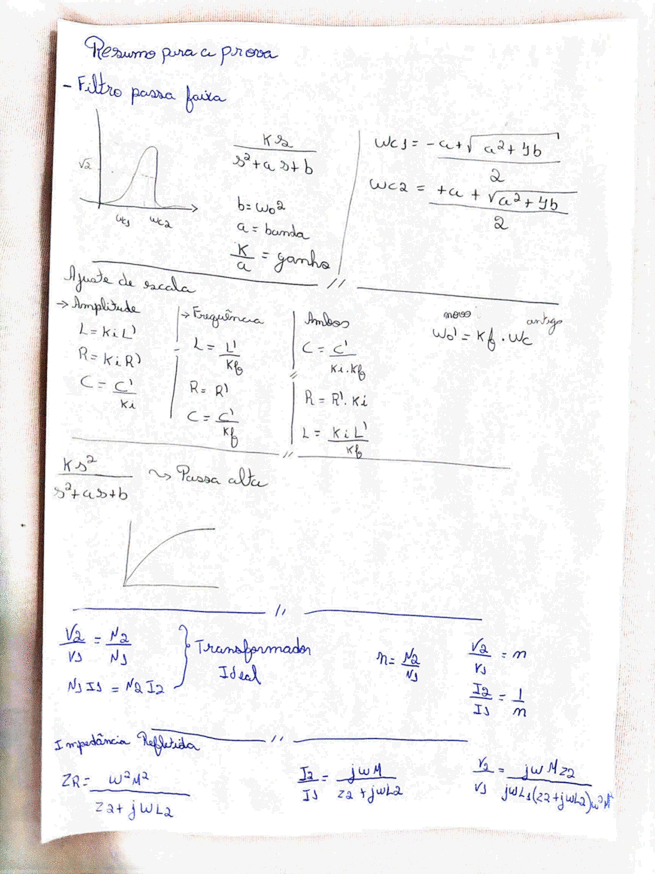 Resumo para a prova
- Filtro passa faixa
√2
wc1 wc2
Ks / s²+as+b
b = wo²
a = banda
K/a = ganho
wc1 = -a+√a²+4b / 2
wc2 = +a+√a²+4b / 2
Ajuste de escala
→ Amplitude
L = KiL'
R = KiR'
C = C'/Ki
→ Frequência
L = L'/Kf
R = R'
C = C'/Kf
Ambos
C = C'/Ki.Kf
R = R'.Ki
L = KiL'/Kf
novo antigo
wo' = Kf . wc
Ks² / s²+as+b ~> Passa alta
V2/V1 = N2/N1
N1I1 = N2I2
} Transformador
Ideal
n = N2/N1
V2/V1 = n
I2/I1 = 1/n
Impedância Refletida
ZR = w²M² / Z2+jwL2
I2/I1 = jwM / Z2+jwL2
V2/V1 = jwMZ2 / jwL1(Z2+jwL2)w²M²